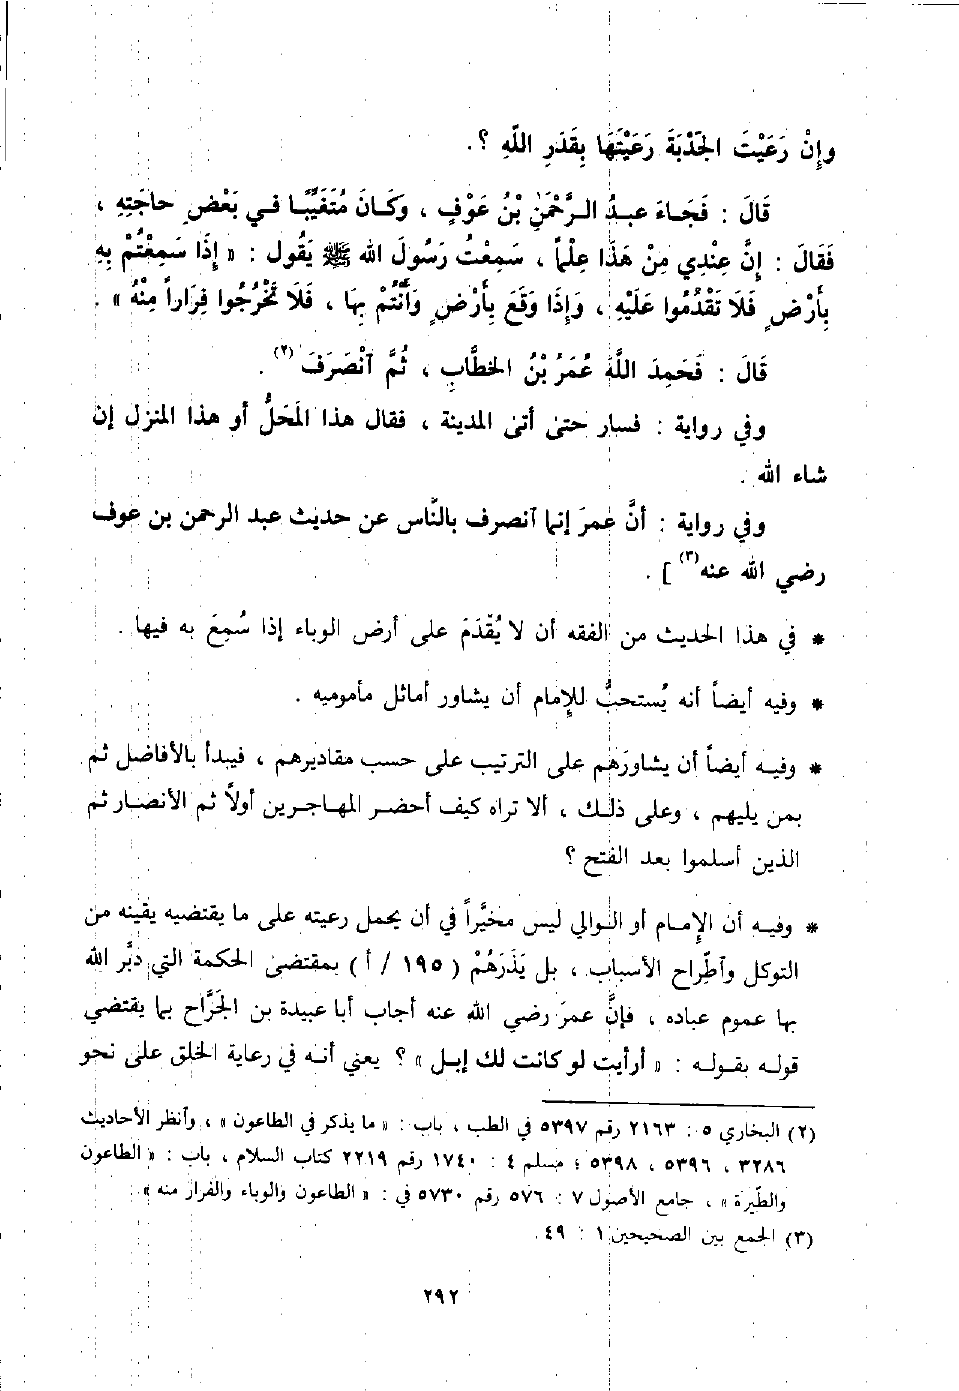 وإنْ رَعَيْتَ الجَدْبَةَ رَعَيْتَهَا بِقَدَرِ اللَّهِ ؟ .
قَالَ : فَجَاءَ عبدُ الرَّحْمَنِ بْنُ عَوْفٍ ، وكَانَ مُتَغَيِّبًا في بَعْضِ حاجَتِهِ ،
فَقَالَ : إِنَّ عِنْدِي مِنْ هَذَا عِلْماً ، سَمِعْتُ رَسُولَ الله ﷺ يَقُول : « إِذَا سَمِعْتُمْ بِهِ
بِأَرْضٍ فَلَا تَقْدُمُوا عَلَيْهِ ، وَإِذَا وَقَعَ بِأَرْضٍ وَأَنْتُمْ بِهَا ، فَلَا تَخْرُجُوا فِرَاراً مِنْهُ » .
قَالَ : فَحَمِدَ اللَّهَ عُمَرُ بْنُ الخَطَّابِ ، ثُمَّ آنْصَرَفَ (٢) .
وفي رواية : فسار حتى أتى المدينة ، فقال هذا المَحَلُّ أو هذا المنزل إن
شاء الله .
وفي رواية : أنَّ عمرَ إنما آنصرف بالنَّاس عن حديث عبد الرحمن بن عوف
رضي الله عنه(٣) ] .
* في هذا الحديث من الفقه أن لا يُقْدَمَ على أرض الوباء إذا سُمِعَ به فيها .
* وفيه أيضاً أنه يُستحبُّ للإمام أن يشاور أماثل مأموميه .
* وفيه أيضاً أن يشاورَهم على الترتيب على حسب مقاديرهم ، فيبدأ بالأفاضل ثم
بمن يليهم ، وعلى ذلك ، ألا تراه كيف أحضر المهاجرين أولاً ثم الأنصار ثم
الذين أسلموا بعد الفتح ؟
* وفيه أن الإمام أو الوالي ليس مخيَّراً في أن يحمل رعيته على ما يقتضيه يقينه من
التوكل وآطِّراح الأسباب ، بل يَذَرَهُمْ ( ١٩٥ / أ ) بمقتضى الحكمة التي دبَّر الله
بها عموم عباده ، فإنَّ عمرَ رضي الله عنه أجاب أبا عبيدة بن الجَرَّاح بما يقتضي
قوله بقوله : « أرأيت لو كانت لك إبل » ؟ يعني أنه في رعاية الخلق على نحو
(٢) البخاري ٥ : ٢١٦٣ رقم ٥٣٩٧ في الطب ، باب : « ما يذكر في الطاعون » ، وآنظر الأحاديث
٣٢٨٦ ، ٥٣٩٦ ، ٥٣٩٨ ؛ مسلم ٤ : ١٧٤٠ رقم ٢٢١٩ كتاب السلام ، باب : « الطاعون
والطِّيرة » ، جامع الأصول ٧ : ٥٧٦ رقم ٥٧٣٠ في : « الطاعون والوباء والفرار منه » .
(٣) الجمع بين الصحيحين ١ : ٤٩ .
٢٩٢